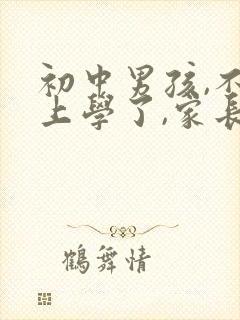 初中男孩,不
上學了,家長
鶴舞情